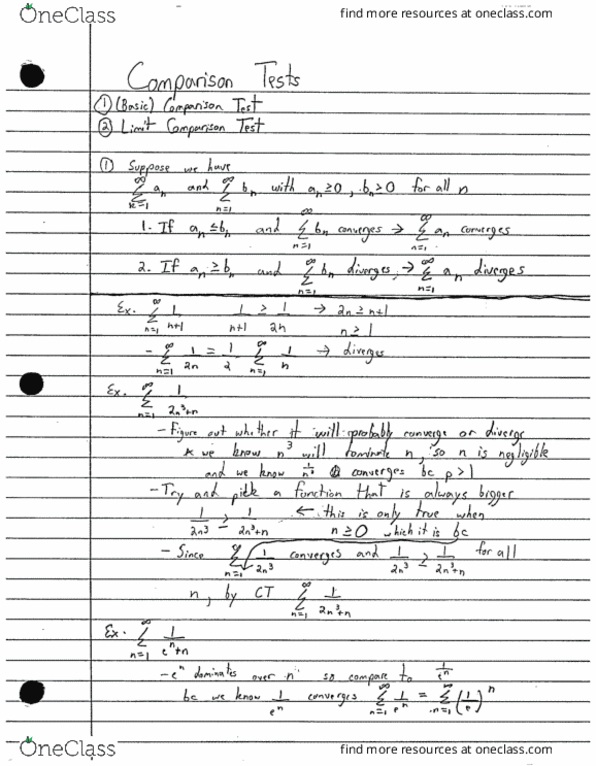 OneClass
find more resources at oneclass.com
Comparison Tests
① (Basic) Comparison Test
② Limit Comparison Test
① Suppose we have
∞∑n=1 aₙ and ∞∑n=1 bₙ with aₙ ≥ 0, bₙ ≥ 0 for all n
1. If aₙ ≤ bₙ and ∞∑n=1 bₙ converges → ∞∑n=1 aₙ converges
2. If aₙ ≥ bₙ and ∞∑n=1 bₙ diverges, → ∞∑n=1 aₙ diverges
Ex. ∞∑n=1 1/(n+1) 1/(n+1) ≥ 1/2n → 2n ≥ n+1
n ≥ 1
- ∞∑n=1 1/2n = 1/2 ∞∑n=1 1/n → diverges
Ex. ∞∑n=1 1/(2n³+n)
- Figure out whether it will probably converge or diverge
* we know n³ will dominate n, so n is negligible
and we know converges bc p > 1
- Try and pick a function that is always bigger
1/2n³ ≥ 1/(2n³+n) ← this is only true when
n ≥ 0 which it is bc
- Since ∞∑n=1 1/2n³ converges and 1/2n³ ≥ 1/(2n³+n) for all
n, by CT ∞∑n=1 1/(2n³+n)
Ex. ∞∑n=1 1/(eⁿ+n)
- eⁿ dominates over n so compare to 1/eⁿ
bc we know 1/eⁿ converges ∞∑n=1 1/eⁿ = ∞∑n=1 (1/e)ⁿ
OneClass
find more resources at oneclass.com